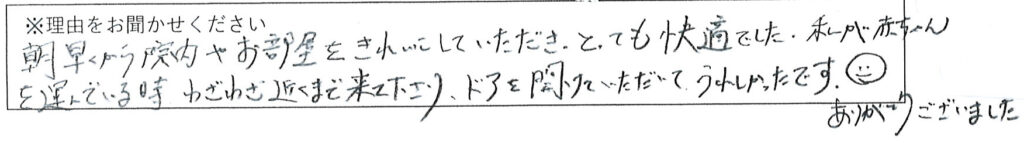 ※理由をお聞かせください
朝早くから院内やお部屋をきれいにしていただき、とても快適でした。私が赤ちゃん
を運んでいる時わざわざ近くまで来て下さり、ドアを開けていただいてうれしかったです。
ありがとうございました